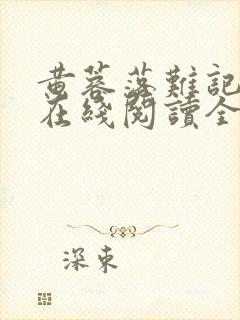 黄蓉落難記
在綫閱讀全
深東